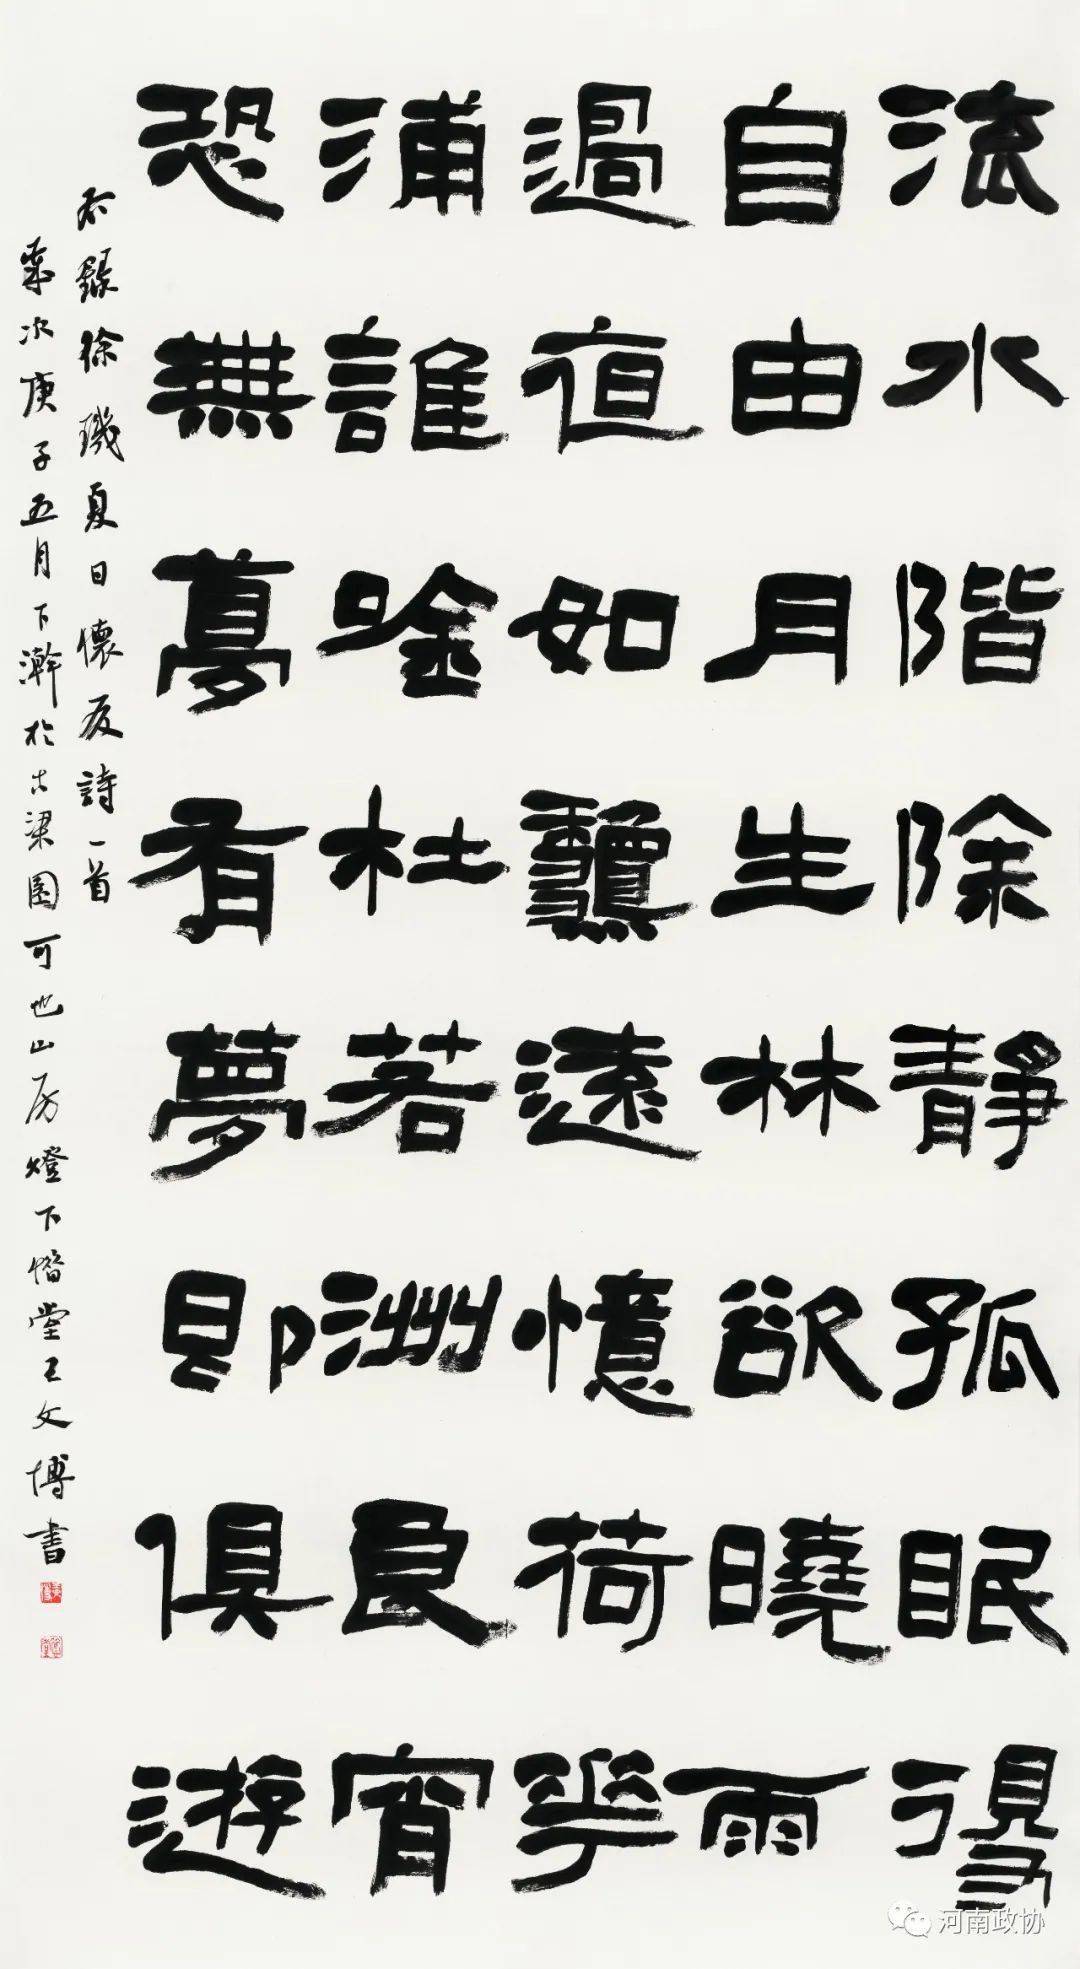 流水階除靜孤眠得
自由月生林欲曉雨
過夜如龝遠憶荷花
浦誰吟杜若洲良宵
恐無夢有夢即俱遊
右錄徐璣夏日懷友詩一首
歲次庚子五月下澣於古梁園可也山房燈下堂王文博書
河南政协